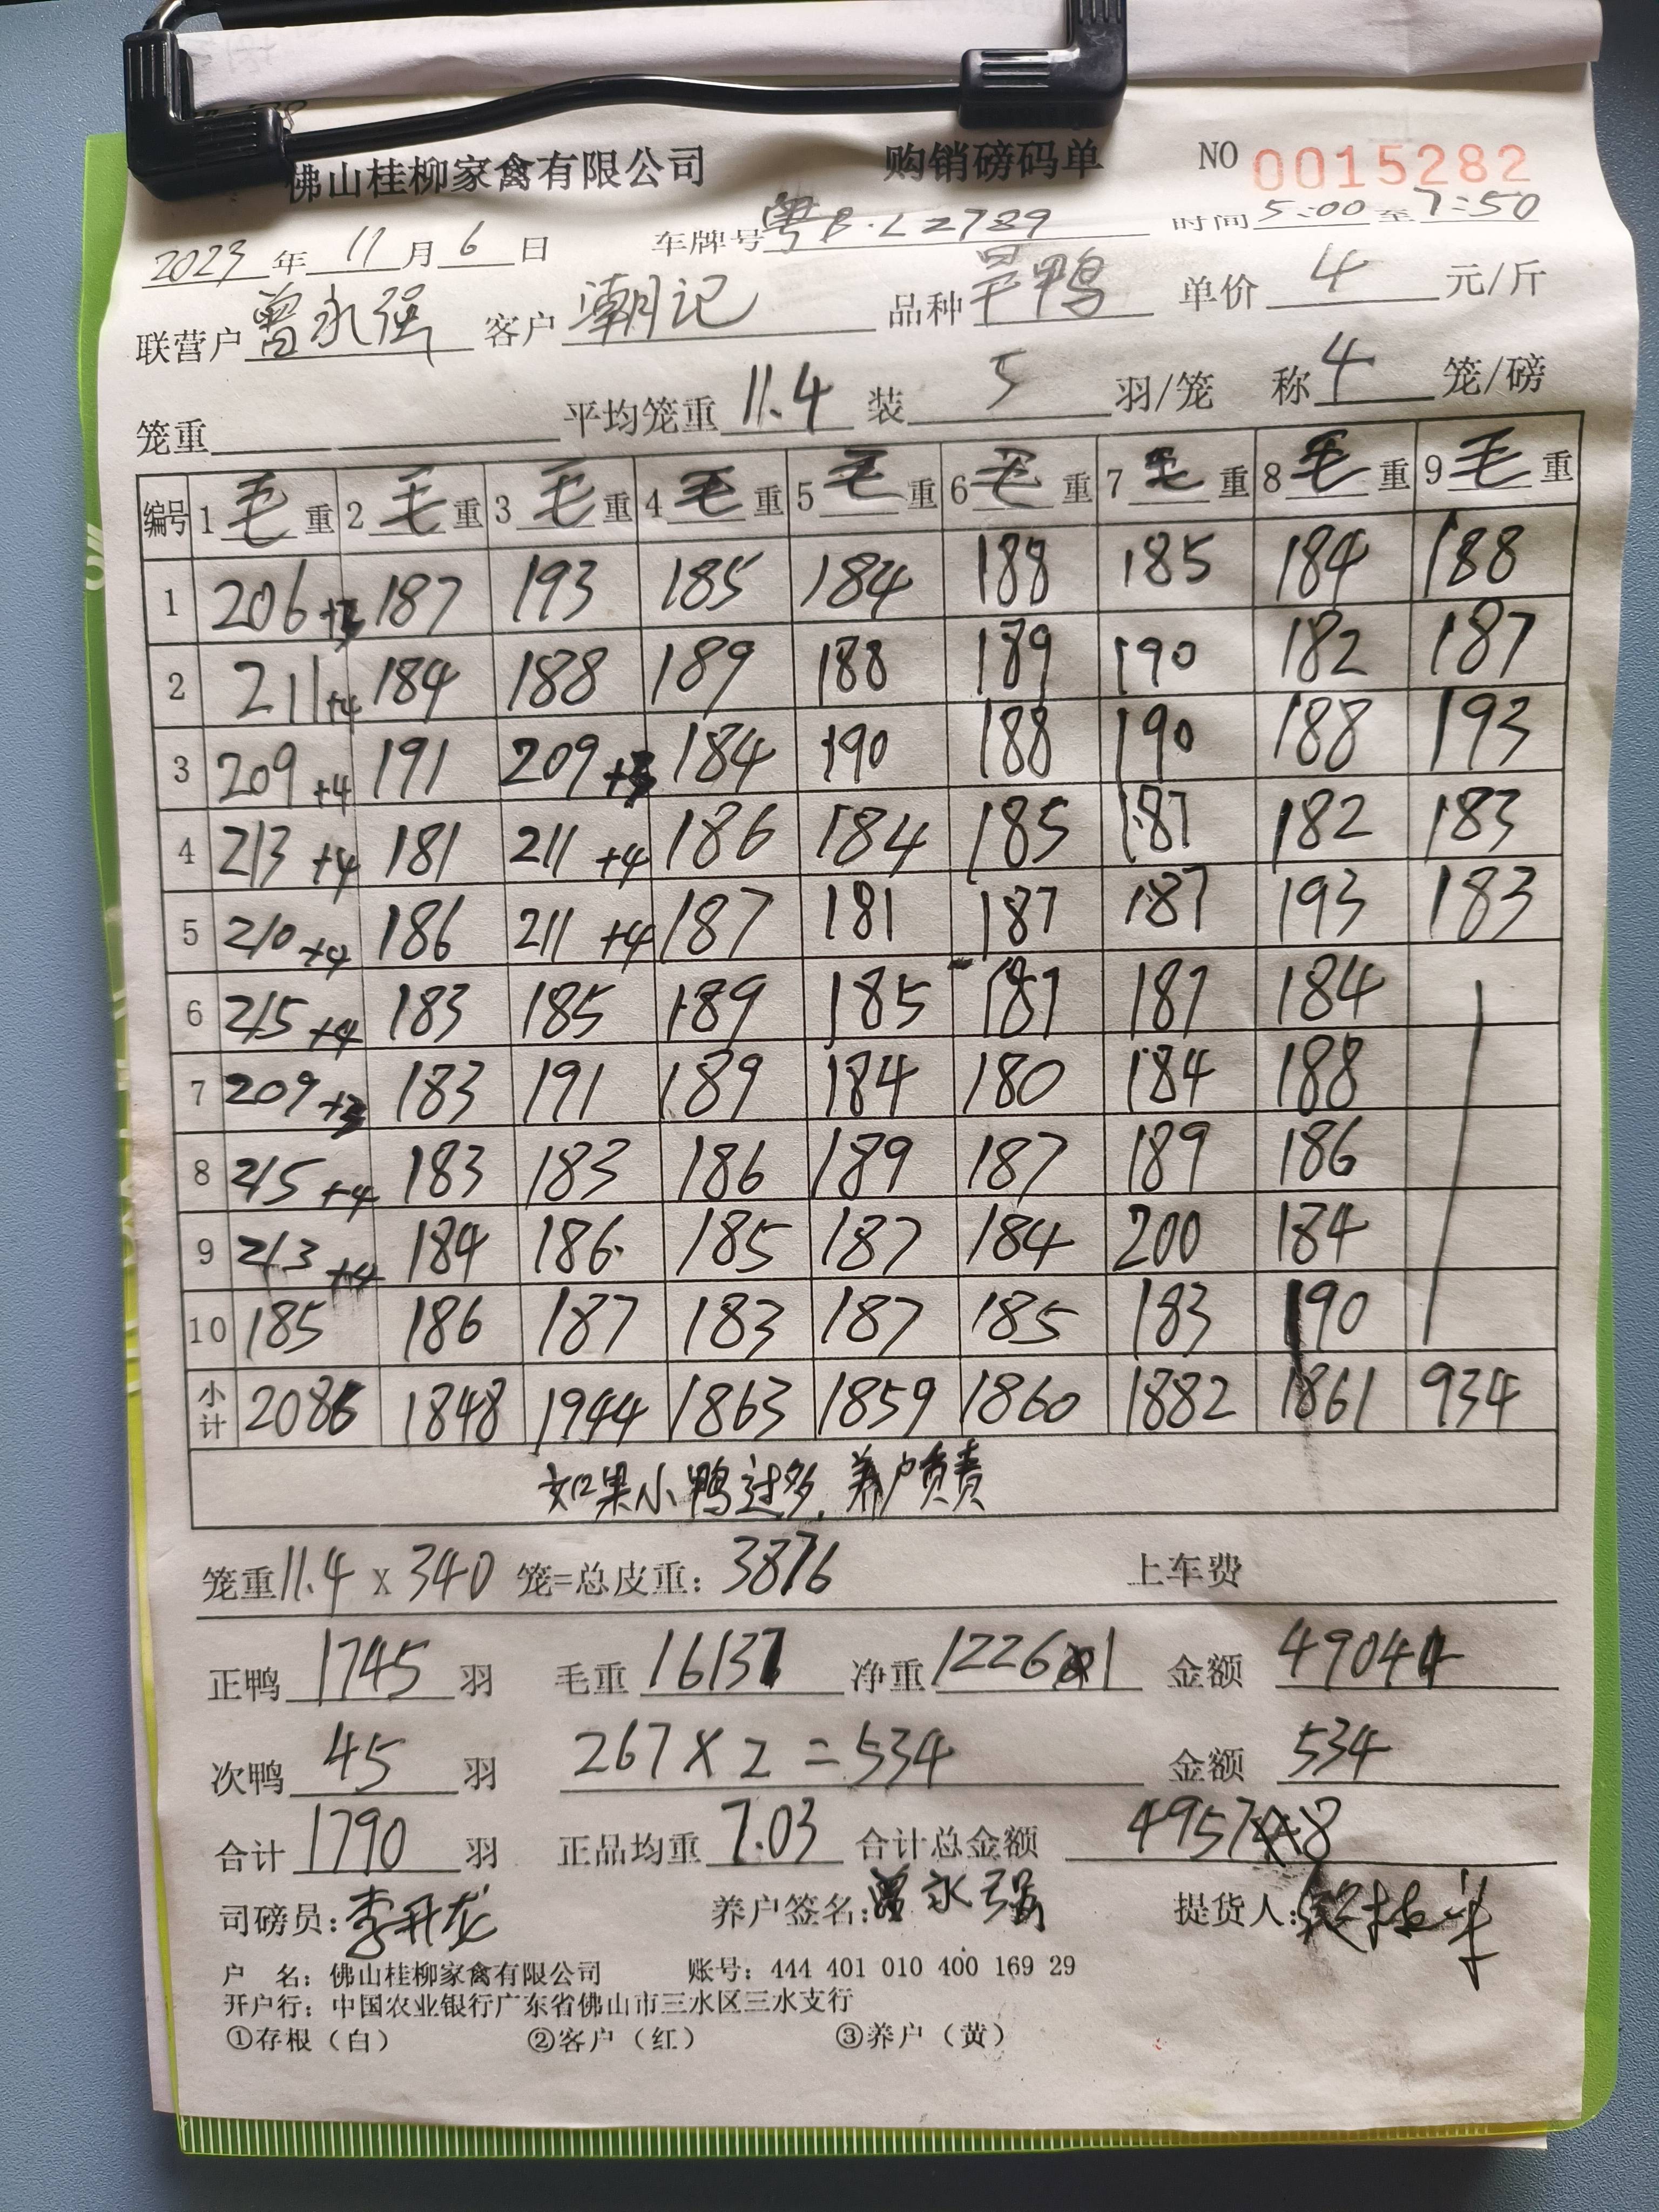 佛山桂柳家禽有限公司 购销磅码单 NO 0015282
2023年11月6日 车牌号粤B·LZ789 时间5:00至7:50
联营户曾永强 客户潮记 品种旱鸭 单价4元/斤
笼重 平均笼重11.4 装5羽/笼 称4笼/磅
编号 1毛重 2毛重 3毛重 4毛重 5毛重 6毛重 7毛重 8毛重 9毛重
1 206+3 187 193 185 184 188 185 184 188
2 211+4 184 188 189 188 189 190 182 187
3 209+4 191 209+3 184 190 188 190 188 193
4 213+4 181 211+4 186 184 185 187 182 183
5 210+4 186 211+4 187 181 187 187 193 183
6 215+4 183 185 189 185 187 187 184
7 209+3 183 191 189 184 180 184 188
8 215+4 183 183 186 189 187 189 186
9 213+4 184 186 185 187 184 200 184
10 185 186 187 183 187 185 183 190
小计 2086 1848 1944 1863 1859 1860 1882 1861 934
如果小鸭过多,养户负责
笼重11.4×340笼=总皮重:3876 上车费
正鸭1745羽 毛重16137 净重12261 金额49044
次鸭45羽 267×2=534 金额534
合计1790羽 正品均重7.03 合计总金额49578
司磅员:李升龙 养户签名:曾永强 提货人:
户 名:佛山桂柳家禽有限公司 账号:444 401 010 400 169 29
开户行:中国农业银行广东省佛山市三水区三水支行
①存根(白) ②客户(红) ③养户(黄)